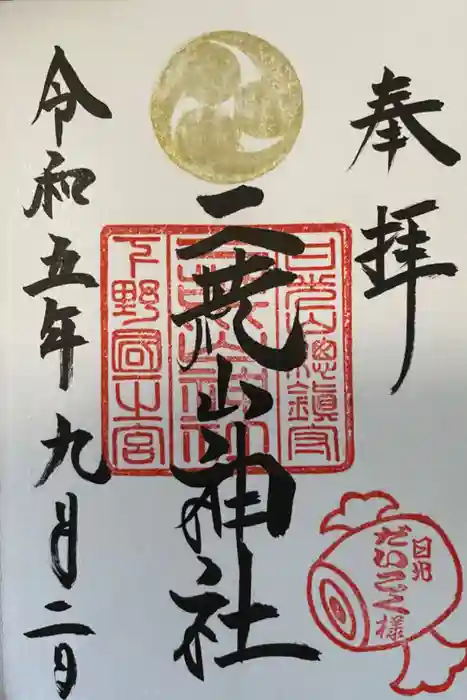 奉拝
二荒山神社
日光山總鎮守
二荒山神社
下野國一之宮
令和五年九月二日
日光
だいこく様